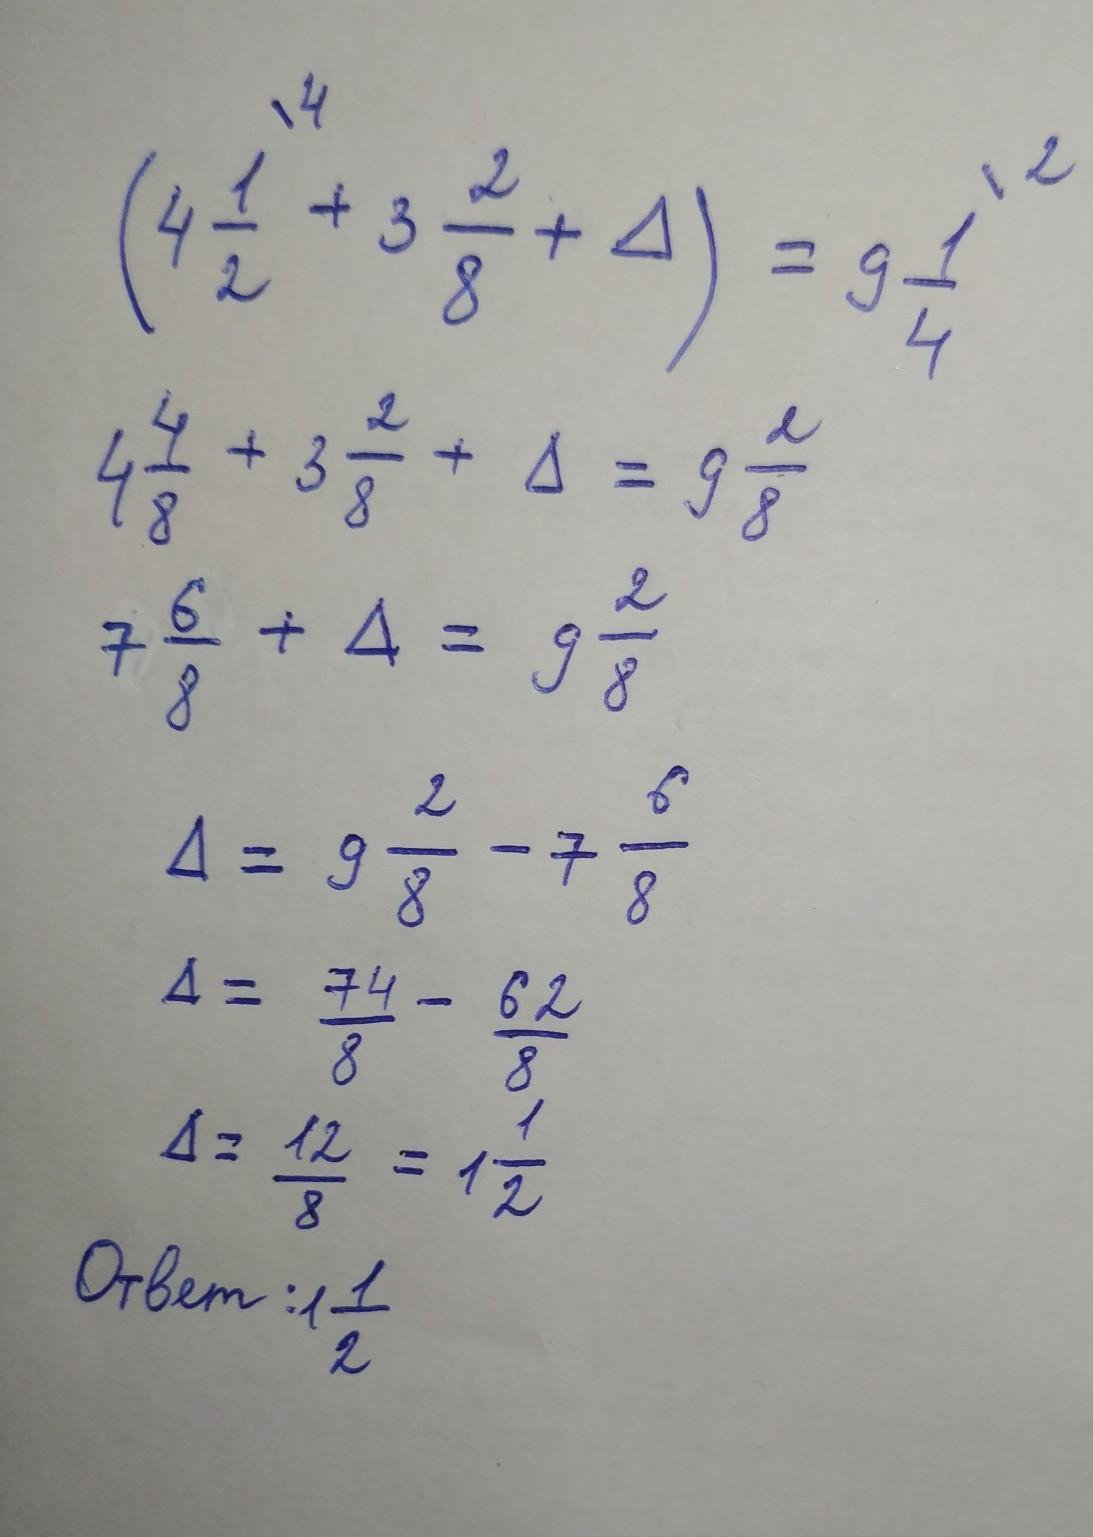 (4 1/2 \4 + 3 2/8 + Δ) = 9 1/4 \2
4 4/8 + 3 2/8 + Δ = 9 2/8
7 6/8 + Δ = 9 2/8
Δ = 9 2/8 - 7 6/8
Δ = 74/8 - 62/8
Δ = 12/8 = 1 1/2
Ответ: 1 1/2